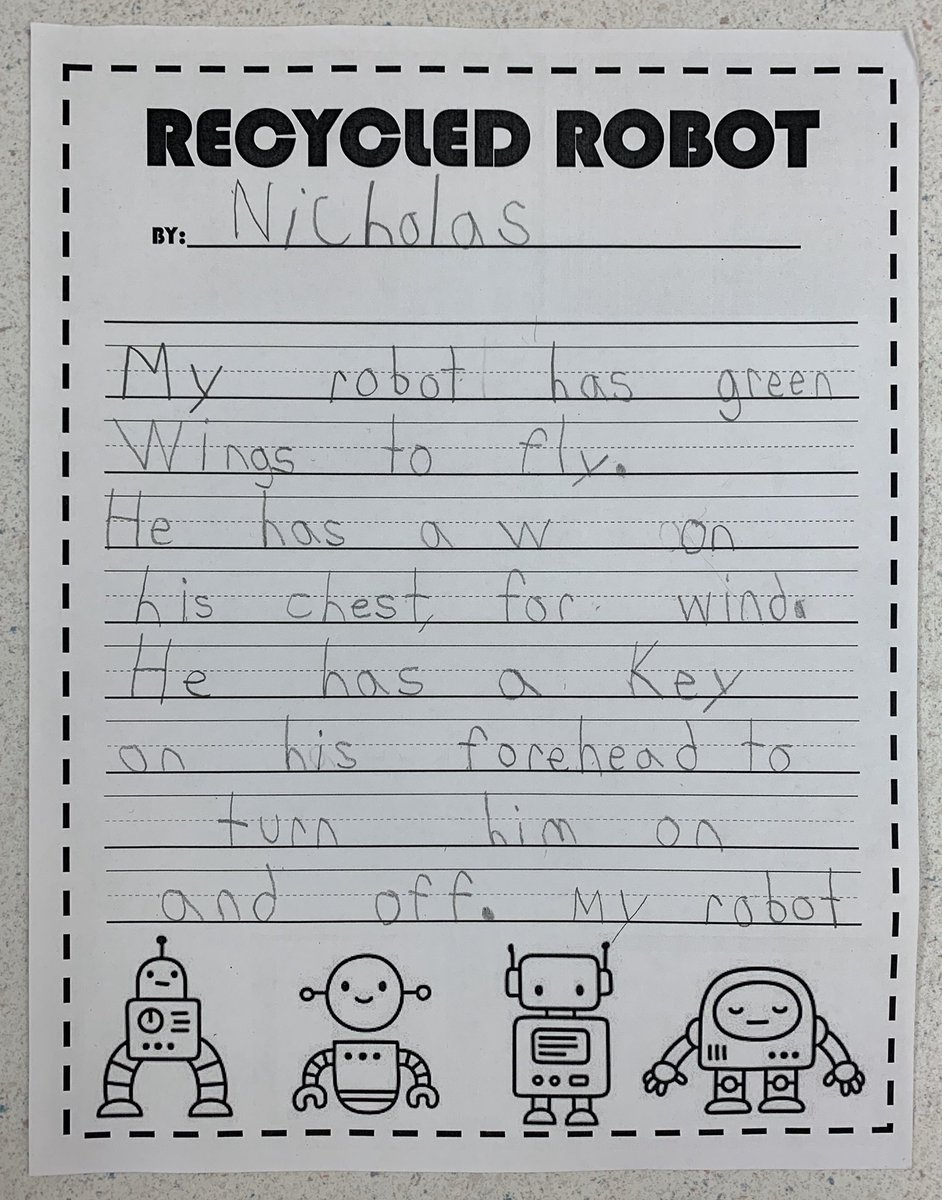 RECYCLED ROBOT
BY: Nicholas
My robot has green
Wings to fly.
He has a w on
his chest for wind.
He has a Key
on his forehead to
turn him on
and off. My robot